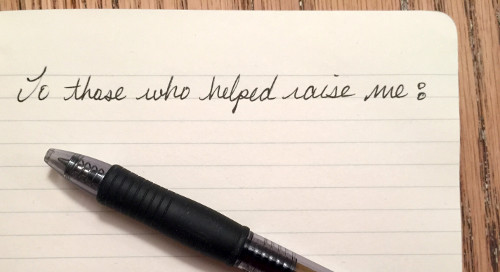 To those who helped raise me: